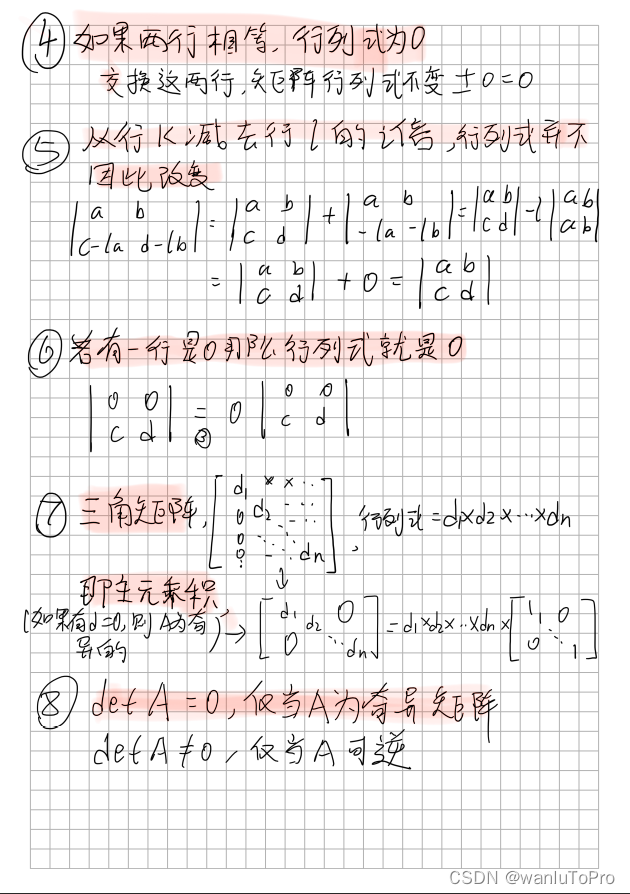 ④ 如果两行相等, 行列式为0
交换这两行, 矩阵行列式不变 ±0=0
⑤ 从行k减去行l的i倍, 行列式并不
因此改变
|a b; c-la d-lb| = |a b; c d| + |a b; -la -lb| = |a b; c d| - l |a b; a b|
= |a b; c d| + 0 = |a b; c d|
⑥ 若有一行是0那么行列式就是0
|0 0; c d| =③ 0 |0 0; c d|
⑦ 三角矩阵, [d1 × × ··; 0 d2 - ··; 0 ·· - ··; 0 ··· ; 0 - ·· dn], 行列式=d1×d2×···×dn
即主元乘积
(如果有d=0, 则A为奇异的) → [d1 0; d2; 0 ··dn] = d1×d2×··×dn×[1 1 0; 0 ·· 1]
⑧ det A = 0, 仅当A为奇异矩阵
det A ≠ 0, 仅当A可逆
CSDN @wanluToPro